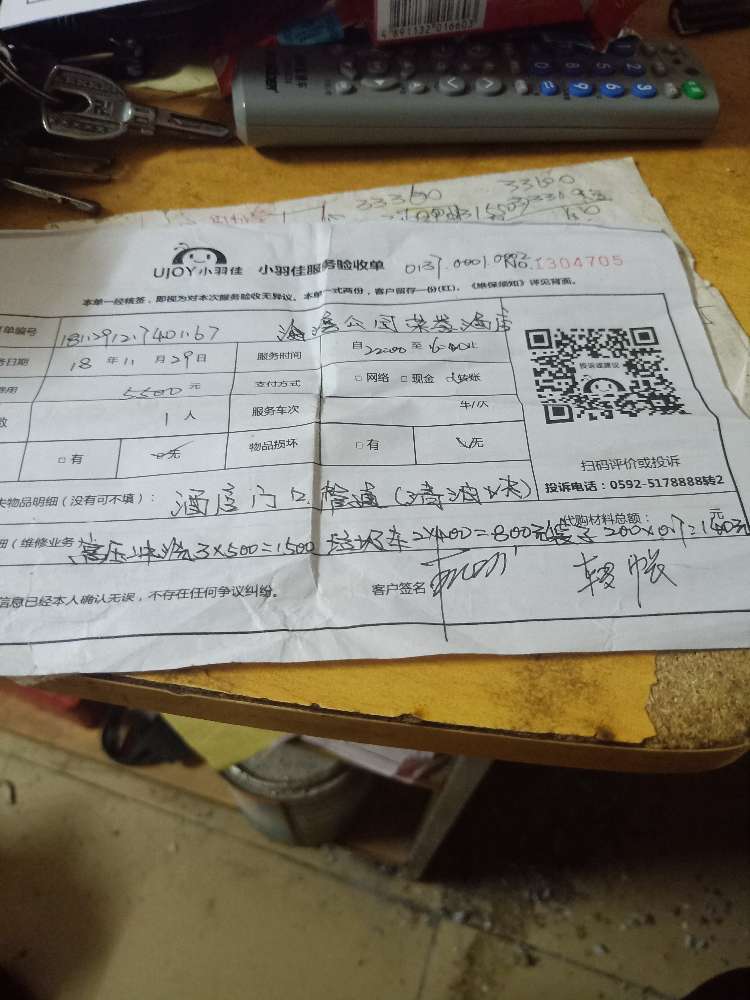 4 891132 01660
33360
33360
UJOY小羽佳 小羽佳服务验收单 0137.0001.0002 No.1304705
本单一经精签，即视为对本次服务验收无异议。本单一式两份，客户留存一份(红)。《维保须知》详见背面。
单编号 1811291217401167 海湾公园荣誉酒店
务日期 18 年 11 月 29 日 服务时间 自 至
5500 元 支付方式 □ 网络 □ 现金 转账
数 1 人 服务车次 车/次
□ 有 无 物品损坏 □ 有 无
扫码评价或投诉
投诉电话：0592-5178888转2
投诉或建议
失物品明细（没有可不填）： 酒店门口管道（清油
细（维修业务 高压冲洗3×500=1500 垃圾车2×400=800元袋子200×0.7=140元
代购材料总额： 元
信息已经本人确认无误，不存在任何争议纠纷。 客户签名 转帐